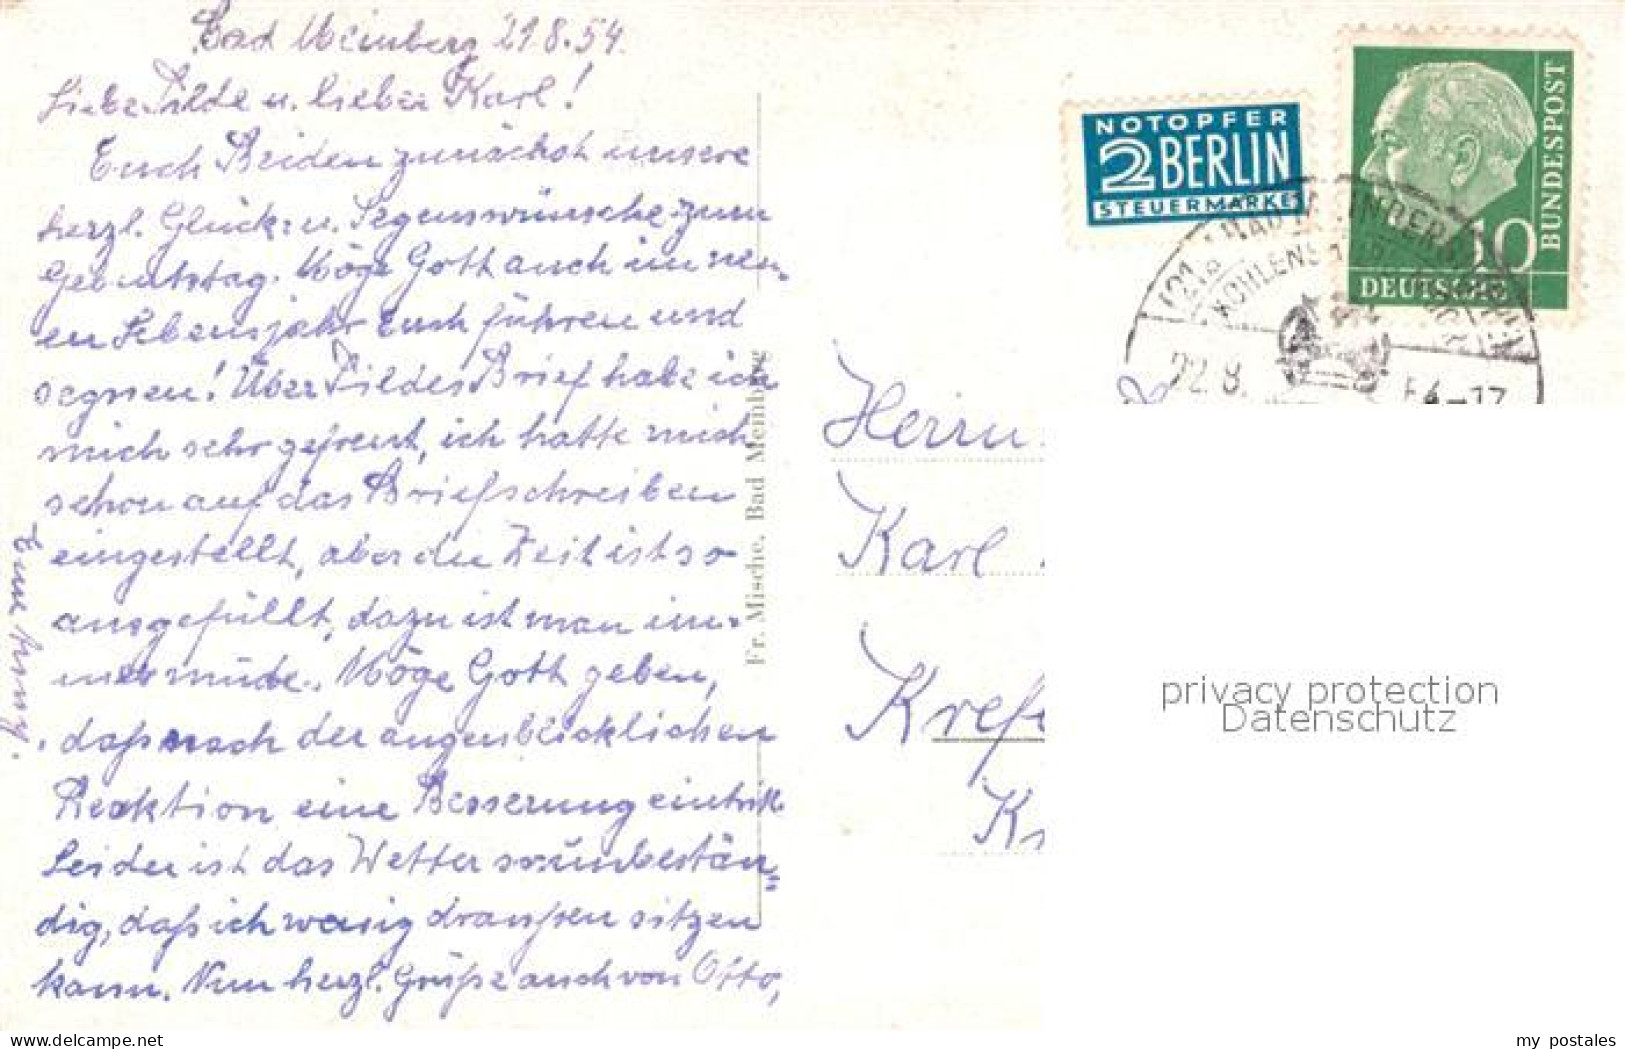 Bad Meinberg 21.8.54.
Liebe Tilde u. lieber Karl!
Euch Beiden zunächst unsere
herzl. Glück= u. Segenswünsche zum
Geburtstag. Möge Gott auch im neu=
en Lebensjahr Euch führen und
segnen! Über Tildes Brief habe ich
mich sehr gefreut, ich hatte mich
schon auf das Briefschreiben
eingestellt, aber die Zeit ist so
ausgefüllt, dazu ist man im=
mer müde. Möge Gott geben,
daß nach der augenblicklichen
Reaktion eine Besserung eintritt.
Leider ist das Wetter so unbestän=
dig, daß ich wenig draußen sitzen
kann. Nun herzl. Grüße auch von Otto,
Eure
Fr. Mische, Bad Meinberg
NOTOPFER
2 BERLIN
STEUERMARKE
DEUTSCHE
BUNDESPOST
10
22.8.
54-17
Herrn
Karl
Krefe
Kr
privacy protection
Datenschutz
www.delcampe.net
my postales